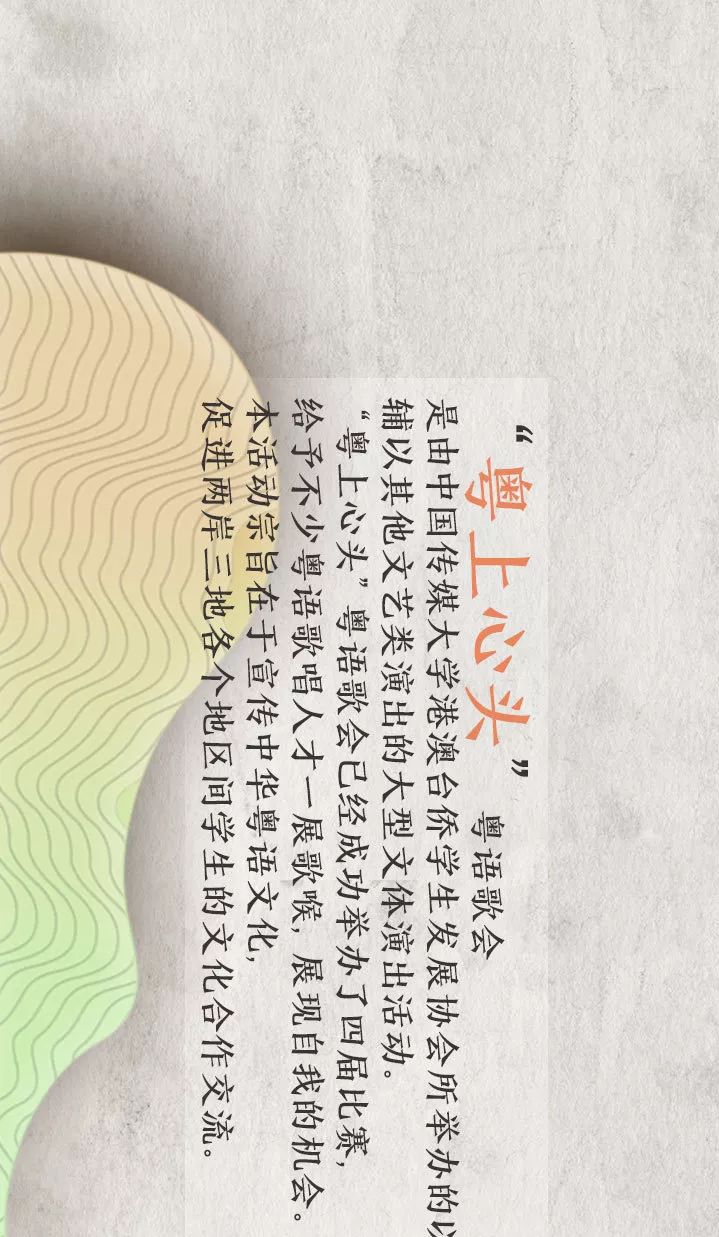 “粤上心头” 粤语歌会
是由中国传媒大学港澳台侨学生发展协会所举办的以
辅以其他文艺类演出的大型文体演出活动。
“粤上心头”粤语歌会已经成功举办了四届比赛，
给予不少粤语歌唱人才一展歌喉，展现自我的机会。
本活动宗旨在于宣传中华粤语文化，
促进两岸三地各个地区间学生的文化合作交流。